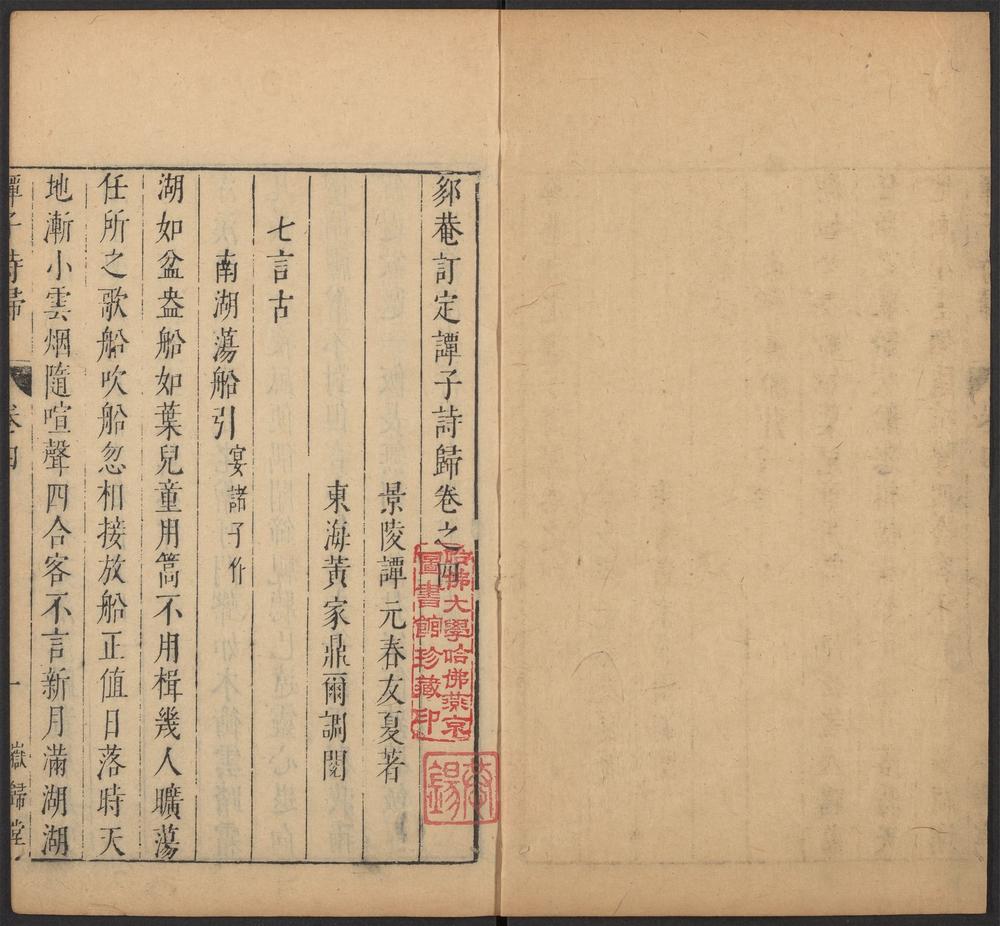 鄒菴訂定譚子詩歸卷之四
景陵譚元春友夏著
東海黃家鼎爾調閱
七言古
南湖蕩船引宴諸子作
湖如盆盎船如葉兒童用篙不用楫幾人曠蕩
任所之歌船吹船忽相接放船正值日落時天
地漸小雲烟隨喧聲四合客不言新月滿湖湖
譚子詩歸
卷四
一
嶽歸堂
哈佛大學哈佛燕京
圖書館珍藏印